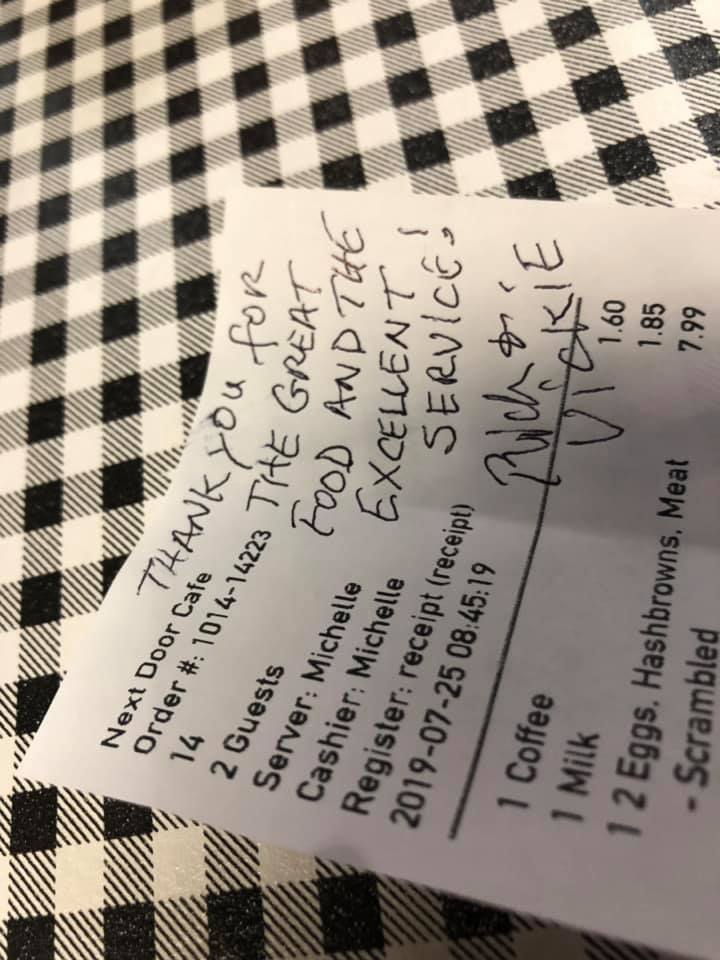 THANK YOU FOR
THE GREAT
FOOD AND THE
EXCELLENT
SERVICE!
Rich &
VICKIE
Next Door Cafe
Order #: 1014-14223
14
2 Guests
Server: Michelle
Cashier: Michelle
Register: receipt (receipt)
2019-07-25 08:45:19
1 Coffee 1.60
1 Milk 1.85
1 2 Eggs, Hashbrowns, Meat 7.99
- Scrambled